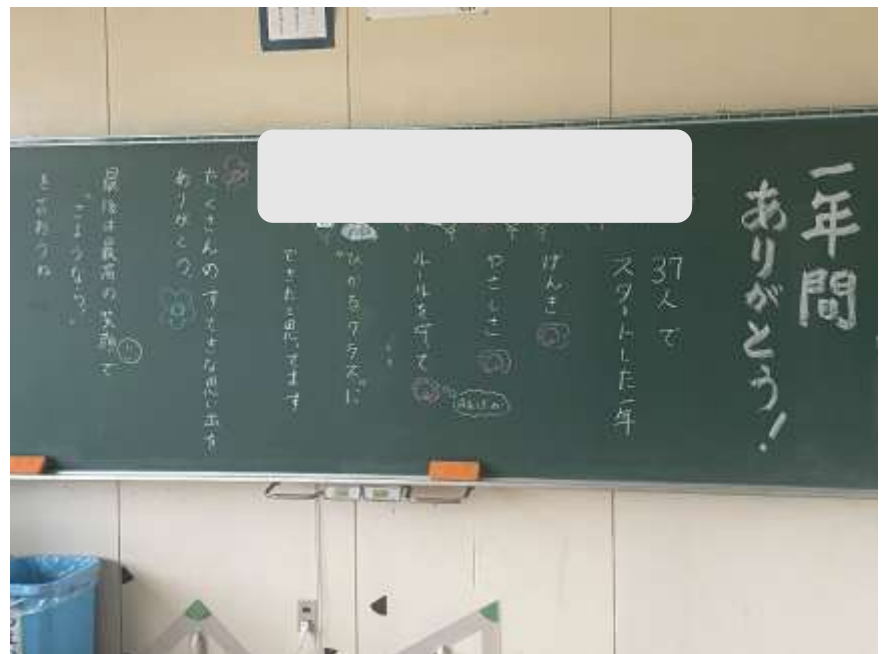 一年間
ありがとう！
37人で
スタートした一年
げんき
やさしさ
ルールを守って
"ひかるクラス"に
できたと思ってます
たくさんのすてきな思い出を
ありがとう
最後は最高の笑顔で
"さようなら"